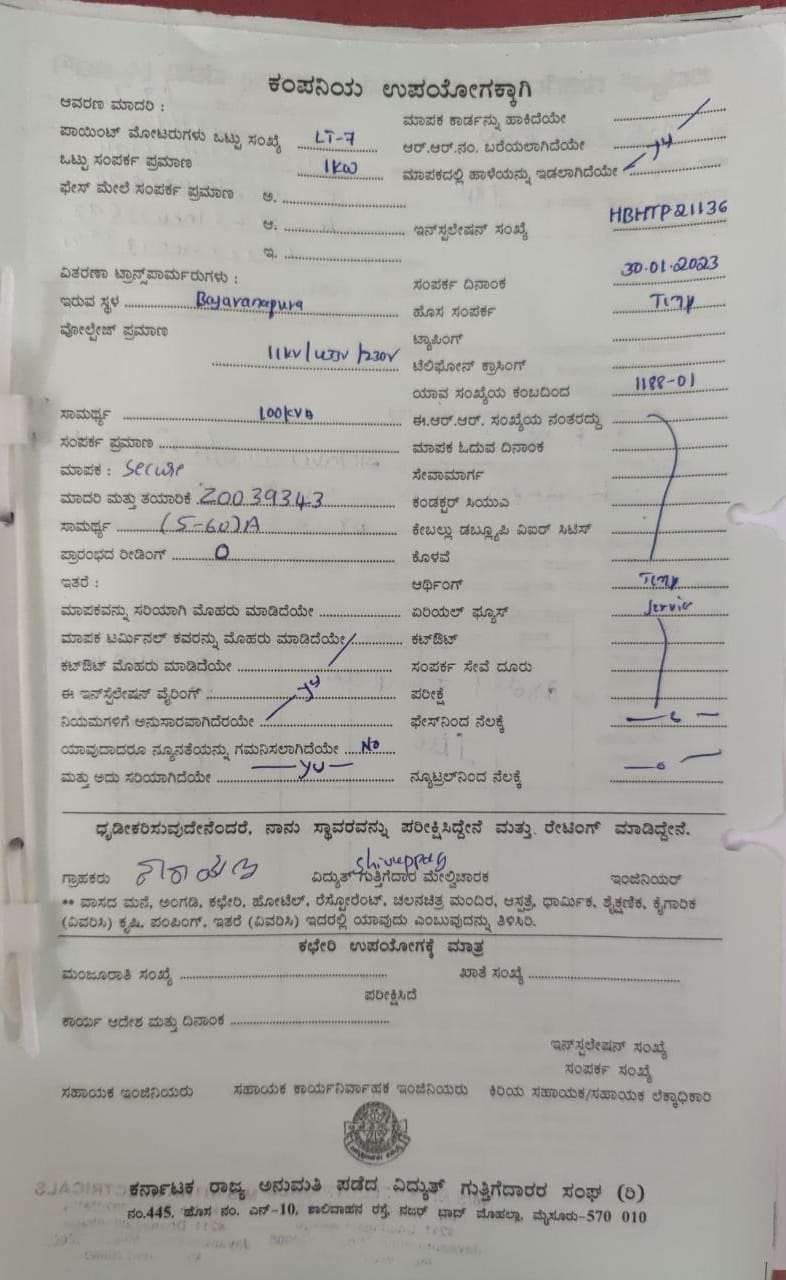 ಕಂಪನಿಯ ಉಪಯೋಗಕ್ಕಾಗಿ
ಆವರಣ ಮಾದರಿ :
ಮಾಪಕ ಕಾರ್ಡನ್ನು ಹಾಕಿದೆಯೇ
ಪಾಯಿಂಟ್ ಮೋಟರುಗಳು ಒಟ್ಟು ಸಂಖ್ಯೆ LT-7
ಆರ್.ಆರ್.ನಂ. ಬರೆಯಲಾಗಿದೆಯೇ
ಒಟ್ಟು ಸಂಪರ್ಕ ಪ್ರಮಾಣ 1KW
ಮಾಪಕದಲ್ಲಿ ಹಾಳೆಯನ್ನು ಇಡಲಾಗಿದೆಯೇ
ಫೇಸ್ ಮೇಲೆ ಸಂಪರ್ಕ ಪ್ರಮಾಣ ಅ.
ಆ.
ಇನ್‌ಸ್ಟಲೇಷನ್ ಸಂಖ್ಯೆ HBHTP21136
ಇ.
ವಿತರಣಾ ಟ್ರಾನ್ಸ್‌ಪಾರ್ಮರುಗಳು :
ಸಂಪರ್ಕ ದಿನಾಂಕ 30.01.2023
ಇರುವ ಸ್ಥಳ
ಹೊಸ ಸಂಪರ್ಕ Temp
ವೋಲ್ಟೇಜ್ ಪ್ರಮಾಣ
ಟ್ಯಾಪಿಂಗ್
11KV/433V/230V
ಟೆಲಿಫೋನ್ ಕ್ರಾಸಿಂಗ್
ಯಾವ ಸಂಖ್ಯೆಯ ಕಂಬದಿಂದ 1188-01
ಸಾಮರ್ಥ್ಯ 100KVA
ಈ.ಆರ್.ಆರ್. ಸಂಖ್ಯೆಯ ನಂತರದ್ದು
ಸಂಪರ್ಕ ಪ್ರಮಾಣ
ಮಾಪಕ ಓದುವ ದಿನಾಂಕ
ಮಾಪಕ : Secure
ಸೇವಾಮಾರ್ಗ
ಮಾದರಿ ಮತ್ತು ತಯಾರಿಕೆ 20039343
ಕಂಡಕ್ಟರ್ ಸಿಯುಎ
ಸಾಮರ್ಥ್ಯ (5-60)A
ಕೇಬಲ್ಲು ಡಬ್ಲ್ಯೂಪಿ ವಿಐರ್ ಸಿಟಿಸ್
ಪ್ರಾರಂಭದ ರೀಡಿಂಗ್ 0
ಕೊಳವೆ
ಇತರೆ :
ಆರ್ಥಿಂಗ್ Temp
ಮಾಪಕವನ್ನು ಸರಿಯಾಗಿ ಮೊಹರು ಮಾಡಿದೆಯೇ
ಏರಿಯಲ್ ಫ್ಯೂಸ್ Service
ಮಾಪಕ ಟರ್ಮಿನಲ್ ಕವರನ್ನು ಮೊಹರು ಮಾಡಿದೆಯೇ
ಕಟ್‌ಔಟ್
ಕಟ್‌ಔಟ್ ಮೊಹರು ಮಾಡಿದೆಯೇ
ಸಂಪರ್ಕ ಸೇವೆ ದೂರು
ಈ ಇನ್‌ಸ್ಟಲೇಷನ್ ವೈರಿಂಗ್
ಪರೀಕ್ಷೆ
ನಿಯಮಗಳಿಗೆ ಅನುಸಾರವಾಗಿದೆರಯೇ
ಫೇಸ್‌ನಿಂದ ನೆಲಕ್ಕೆ
ಯಾವುದಾದರೂ ನ್ಯೂನತೆಯನ್ನು ಗಮನಿಸಲಾಗಿದೆಯೇ No
ಮತ್ತು ಅದು ಸರಿಯಾಗಿದೆಯೇ
ನ್ಯೂಟ್ರಲ್‌ನಿಂದ ನೆಲಕ್ಕೆ
ಧೃಡೀಕರಿಸುವುದೇನೆಂದರೆ, ನಾನು ಸ್ಥಾವರವನ್ನು ಪರೀಕ್ಷಿಸಿದ್ದೇನೆ ಮತ್ತು. ರೇಟಿಂಗ್ ಮಾಡಿದ್ದೇನೆ.
ಗ್ರಾಹಕರು
ವಿದ್ಯುತ್ ಗುತ್ತಿಗೆದಾರ ಮೇಲ್ವಿಚಾರಕ
ಇಂಜಿನಿಯರ್
** ವಾಸದ ಮನೆ, ಅಂಗಡಿ, ಕಛೇರಿ, ಹೋಟೆಲ್, ರೆಸ್ಟೋರೆಂಟ್, ಚಲನಚಿತ್ರ ಮಂದಿರ, ಆಸ್ಪತ್ರೆ, ಧಾರ್ಮಿಕ, ಶೈಕ್ಷಣಿಕ, ಕೈಗಾರಿಕ
(ವಿವರಿಸಿ) ಕೃಷಿ, ಪಂಪಿಂಗ್, ಇತರೆ (ವಿವರಿಸಿ) ಇದರಲ್ಲಿ ಯಾವುದು ಎಂಬುವುದನ್ನು ತಿಳಿಸಿರಿ.
ಕಛೇರಿ ಉಪಯೋಗಕ್ಕೆ ಮಾತ್ರ
ಮಂಜೂರಾತಿ ಸಂಖ್ಯೆ
ಖಾತೆ ಸಂಖ್ಯೆ
ಪರೀಕ್ಷಿಸಿದೆ
ಕಾರ್ಯ ಆದೇಶ ಮತ್ತು ದಿನಾಂಕ
ಇನ್‌ಸ್ಟಲೇಷನ್ ಸಂಖ್ಯೆ
ಸಂಪರ್ಕ ಸಂಖ್ಯೆ
ಸಹಾಯಕ ಇಂಜಿನಿಯರು ಸಹಾಯಕ ಕಾರ್ಯನಿರ್ವಾಹಕ ಇಂಜಿನಿಯರು ಕಿರಿಯ ಸಹಾಯಕ/ಸಹಾಯಕ ಲೆಕ್ಕಾಧಿಕಾರಿ
ಕರ್ನಾಟಕ ರಾಜ್ಯ ಅನುಮತಿ ಪಡೆದ ವಿದ್ಯುತ್ ಗುತ್ತಿಗೆದಾರರ ಸಂಘ (ರಿ)
ನಂ.445, ಹೊಸ ನಂ. ಎನ್-10, ಶಾಲಿವಾಹನ ರಸ್ತೆ, ನಜರ್ ಭಾದ್ ಮೊಹಲ್ಲಾ, ಮೈಸೂರು-570 010